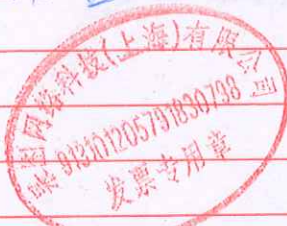 网络科技(上海)有限公司
913101205791830798
发票专用章